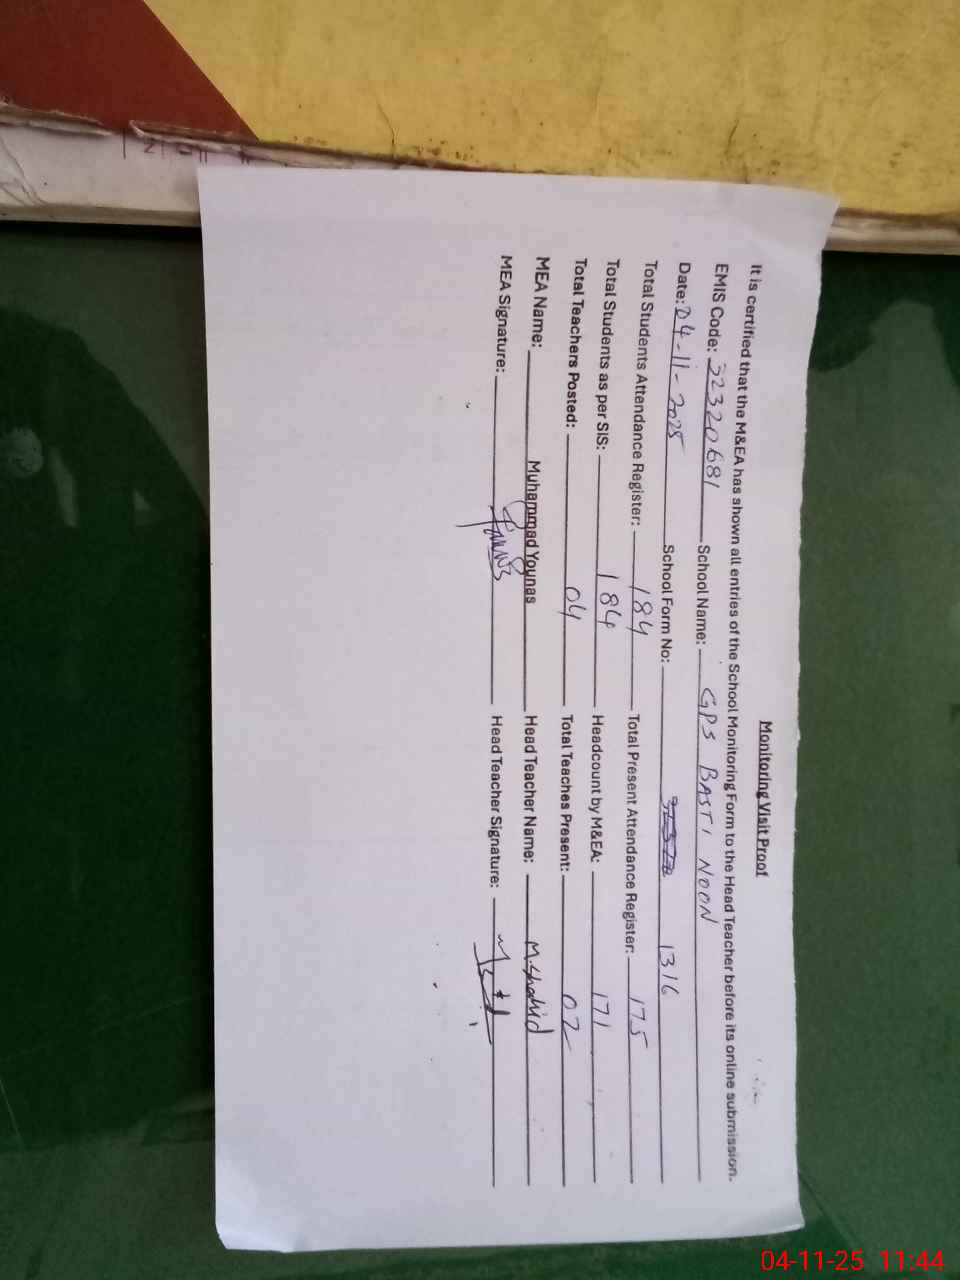 Monitoring Visit Proof
It is certified that the M&EA has shown all entries of the School Monitoring Form to the Head Teacher before its online submission.
EMIS Code: 32320681 School Name: GPS BASTI NOON
Date: 04-11-2025 School Form No: 1316
Total Students Attendance Register: 184 Total Present Attendance Register: 175
Total Students as per SIS: 184 Headcount by M&EA: 171
Total Teachers Posted: 04 Total Teaches Present: 02
MEA Name: Muhammad Younas Head Teacher Name: M.Shahid
MEA Signature: Younas Head Teacher Signature:
04-11-25 11:44